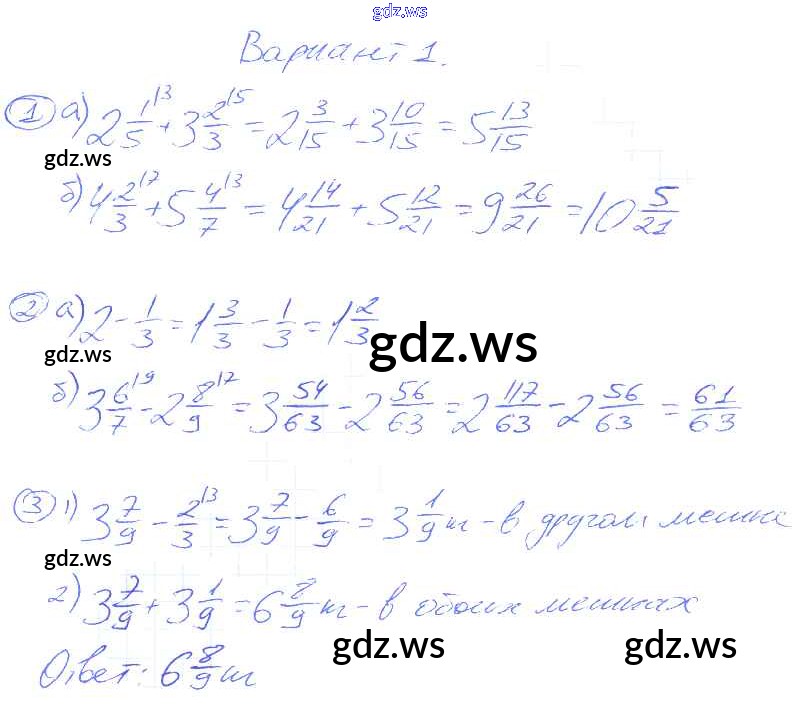 gdz.ws
Вариант 1.
① а) 2 1/5 |3 + 3 2/3 |5 = 2 3/15 + 3 10/15 = 5 13/15
gdz.ws
б) 4 2/3 |7 + 5 4/7 |3 = 4 14/21 + 5 12/21 = 9 26/21 = 10 5/21
② а) 2 - 1/3 = 1 3/3 - 1/3 = 1 2/3
gdz.ws gdz.ws
б) 3 6/7 |9 - 2 8/9 |7 = 3 54/63 - 2 56/63 = 2 117/63 - 2 56/63 = 61/63
③ 1) 3 7/9 - 2/3 |3 = 3 7/9 - 6/9 = 3 1/9 т - в другом мешке
gdz.ws
2) 3 7/9 + 3 1/9 = 6 8/9 т - в обоих мешках
gdz.ws gdz.ws
Ответ: 6 8/9 т